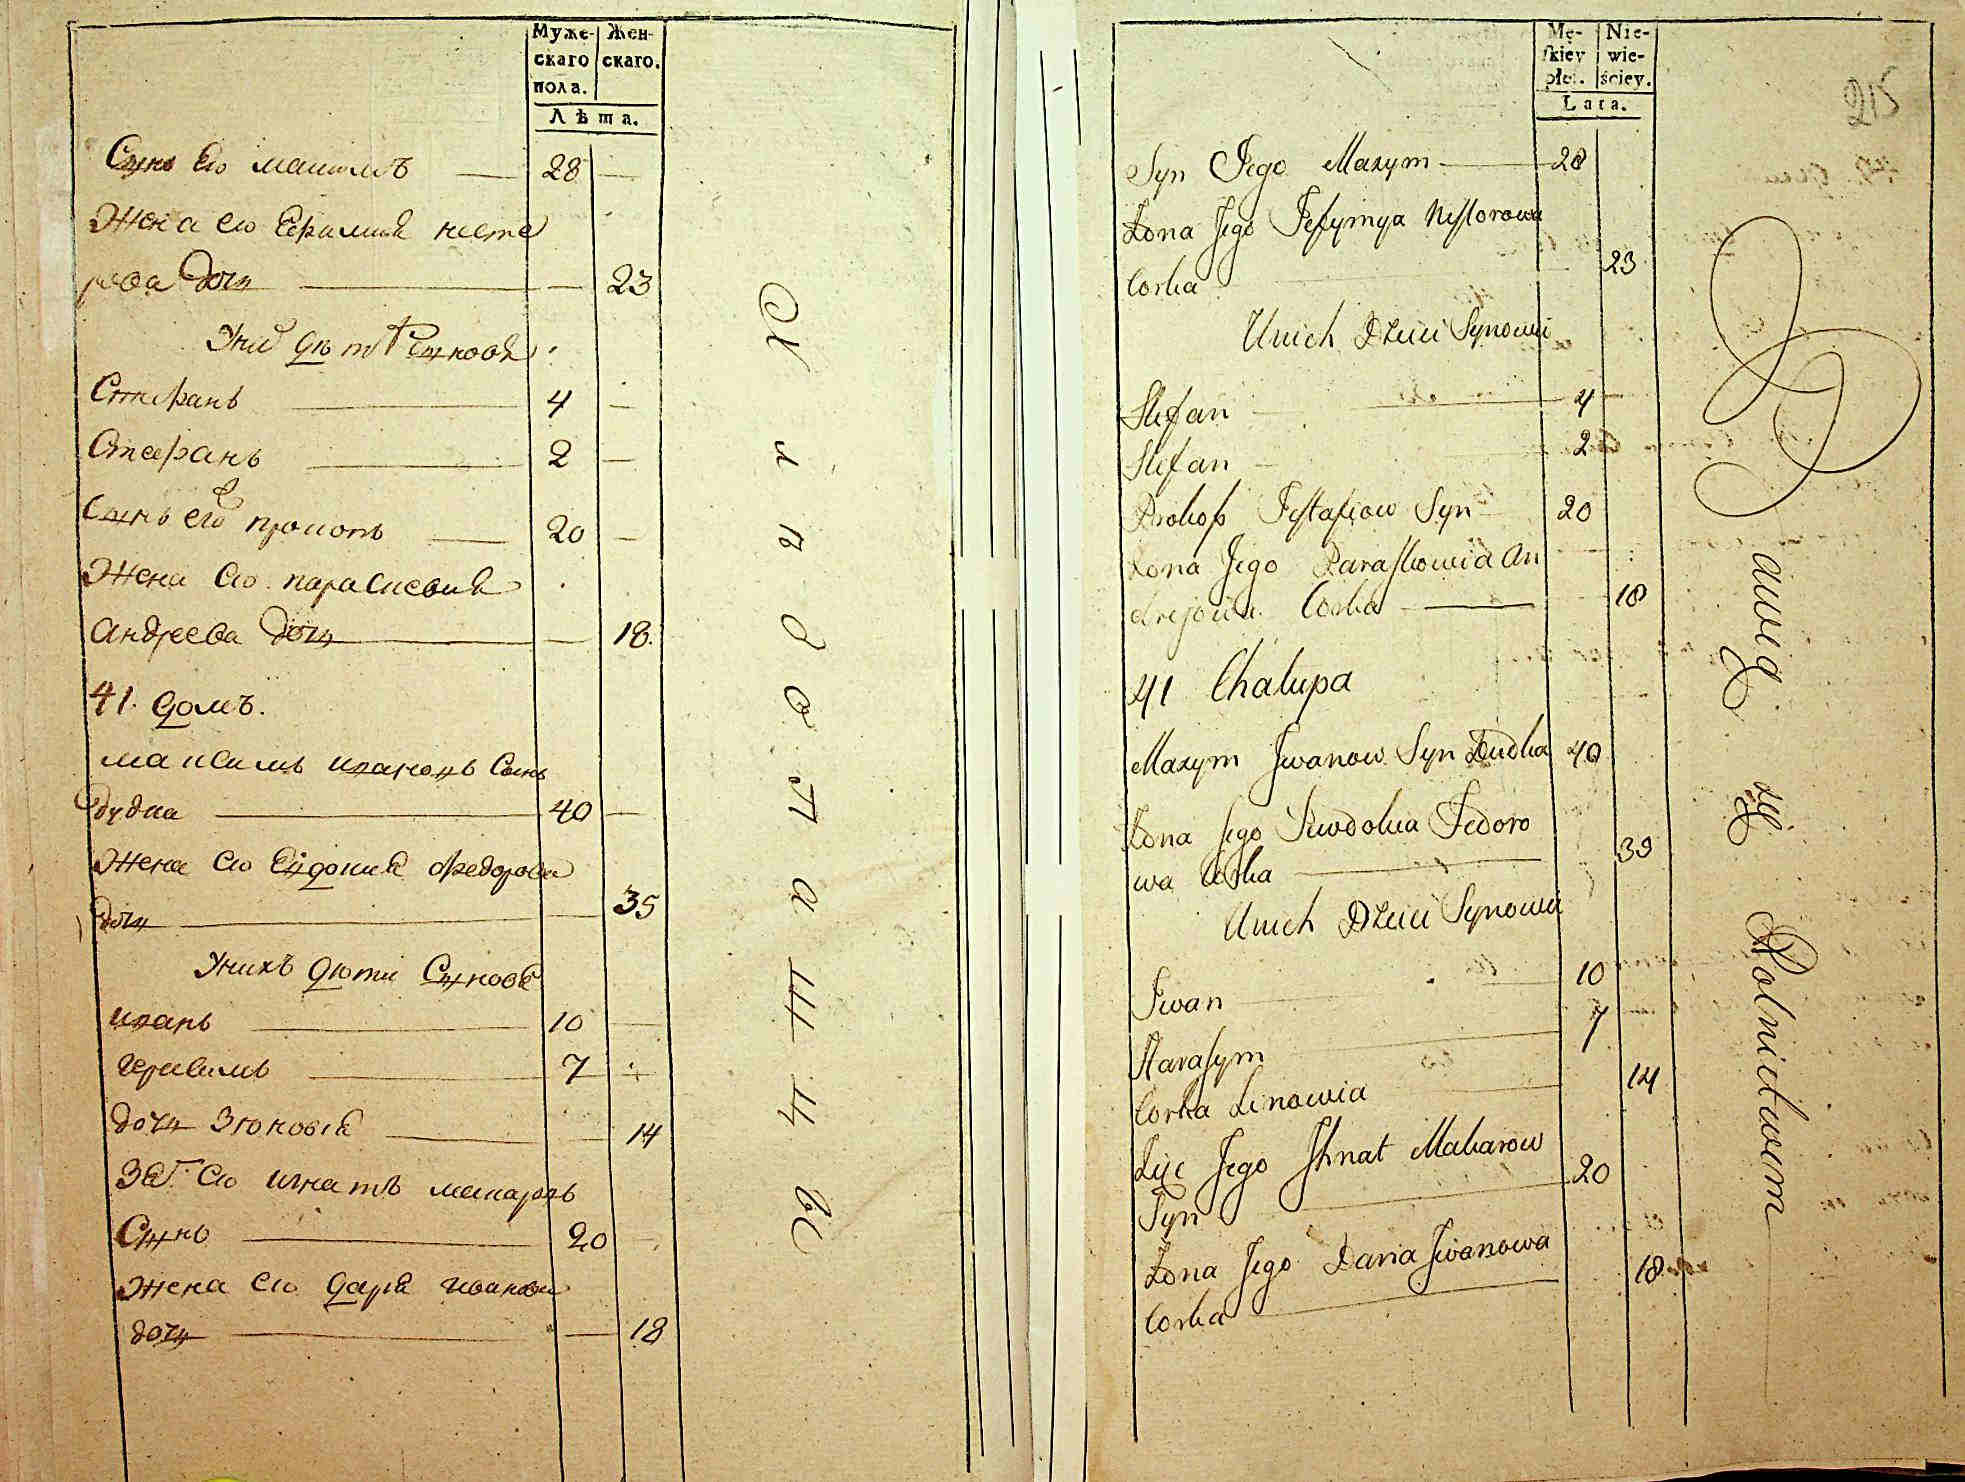 Муже-
скаго
пола.
Жен-
скаго.
Лѣта.
Сынъ Его Максимъ — 28 —
Жена его Ефимия Несте
рова дочь — — 23
У них дѣти Сыновя
Стефанъ — 4 —
Стефанъ — 2 —
Сынъ его Прокопъ — 20 —
Жена его Параскевия
Андреева дочь — — 18.
41. домъ.
Максимъ Ивановъ Сынъ
дудка — 40 —
Жена его Евдокия Федорова
дочь — — 35
У нихъ дѣти Сыновя
Иванъ — 10 —
Герасимъ — 7
дочь Зѣновія — — 14
Зят. его Игнатъ Макаровъ
Сынъ — 20
Жена его дарія Иванова
дочь — — 18
Mę-
skiey
płci.
Nie-
wie-
ściey.
Lata.
215
Syn Jego Maxym — 28
Żona Jego Jefymya Nestorowa
Corka 23
Unich Dzieci Synowie
Stefan — 4 —
Stefan — 2
Prokop Jestafiow Syn 20
Żona Jego Paraskowia An
drejowa Corka — 18
41 Chałupa
Maxym Jwanow Syn Dudka 40
Żona Jego Jewdokia Fedoro
wa Corka — 39
Unich Dzieci Synowie
Jwan 10
Harasym 7
Corka Zinowia 14
Zięc Jego Ihnat Makarow
Syn 20
Żona Jego Daria Jwanowa
Corka 18
Bawią się Rolnictwem